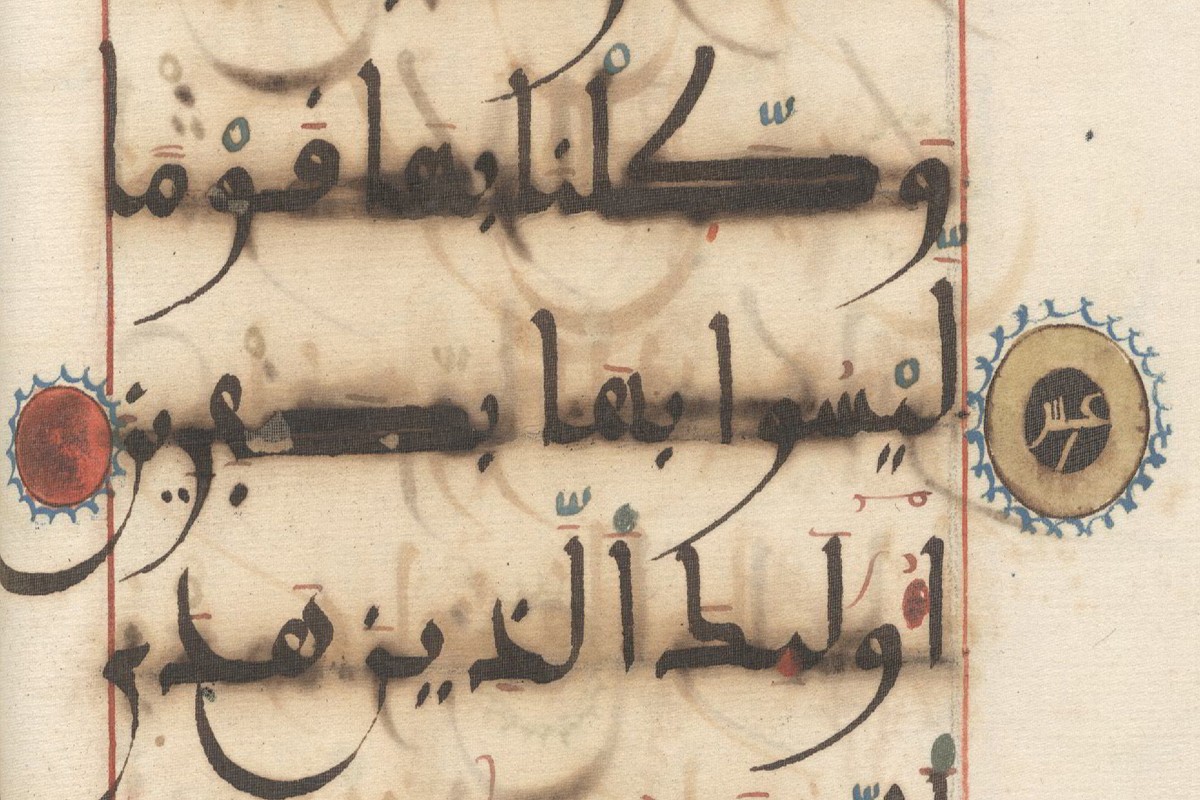 وَكَّلْنَا بِهَا قَوْمًا
لَّيْسُوا بِهَا بِكَفِرِينَ
أُولَئِكَ الَّذِينَ هَدَى